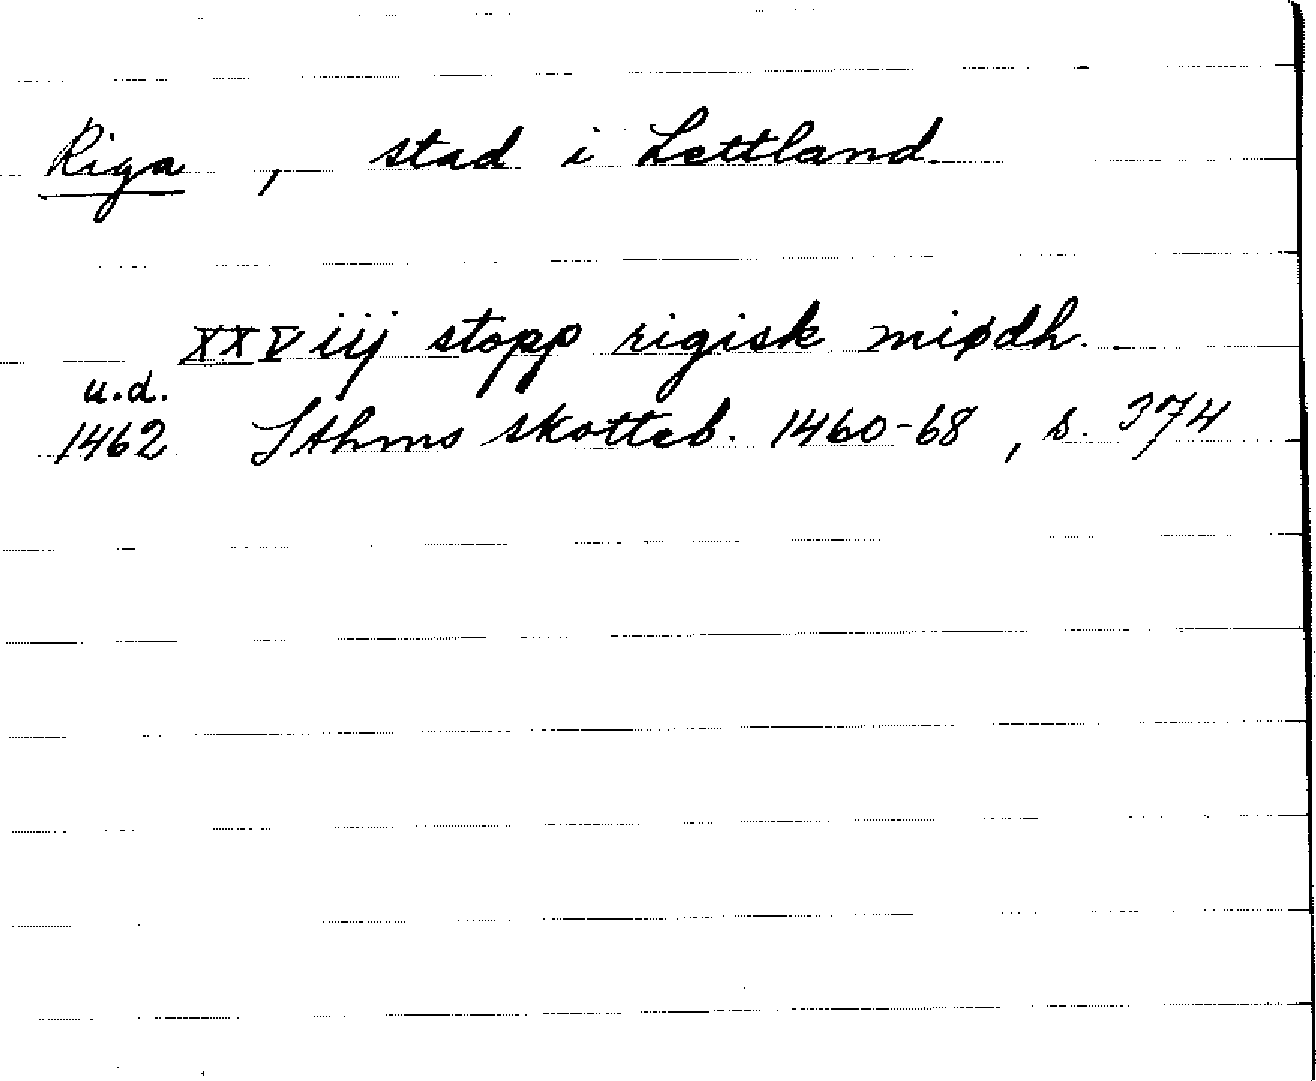 Riga, stad i Lettland.
XXViij stopp rigisk miødh.
u.d.
1462 Sthms skotteb. 1460-68, s. 374